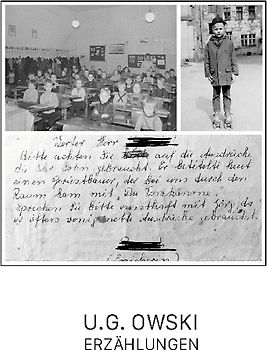 Werter Herr
Bitte achten Sie auf die Ausdrücke
die Ihr Sohn gebraucht. Er betitelte heut
einen Gerüstbauer, der bei uns durch den
Raum kam mit „Du Kotzkanone“.
Sprechen Sie bitte ernsthaft mit Jörg, da
es öfters wenig nette Ausdrücke gebraucht.
(Erzieherin)
U.G. OWSKI
ERZÄHLUNGEN